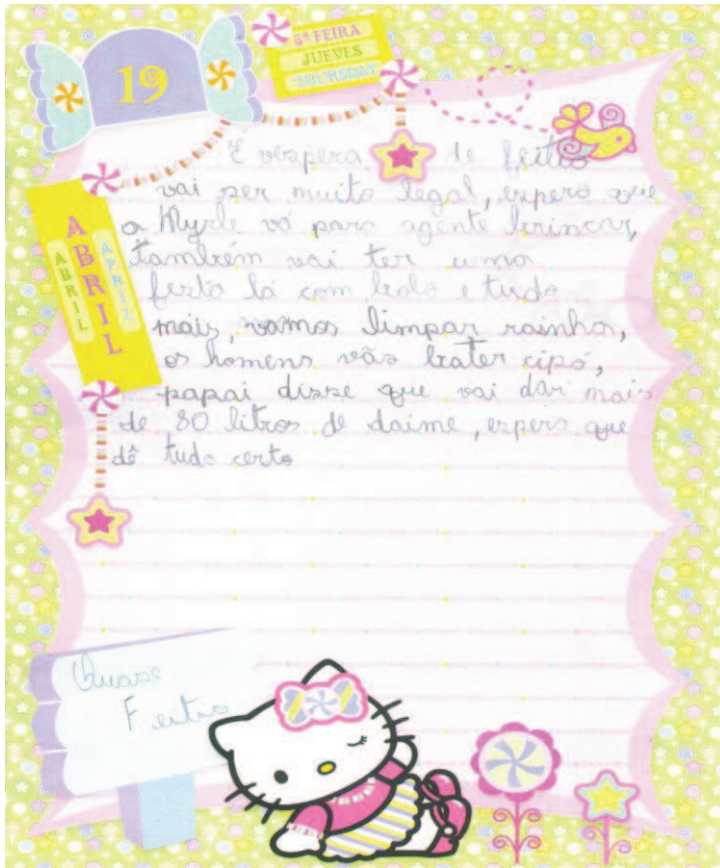 19
5ª FEIRA
JUEVES
THURSDAY
ABRIL
ABRIL
APRIL
É véspera de feitio
vai ser muito legal, espero que
a Myrle vá para agente brincar,
também vai ter uma
festa lá com bolo e tudo
mais, vamos limpar rainha,
os homens vão bater cipó,
papai disse que vai dar mais
de 80 litros de daime, espero que
dê tudo certo
Quase
Feitio